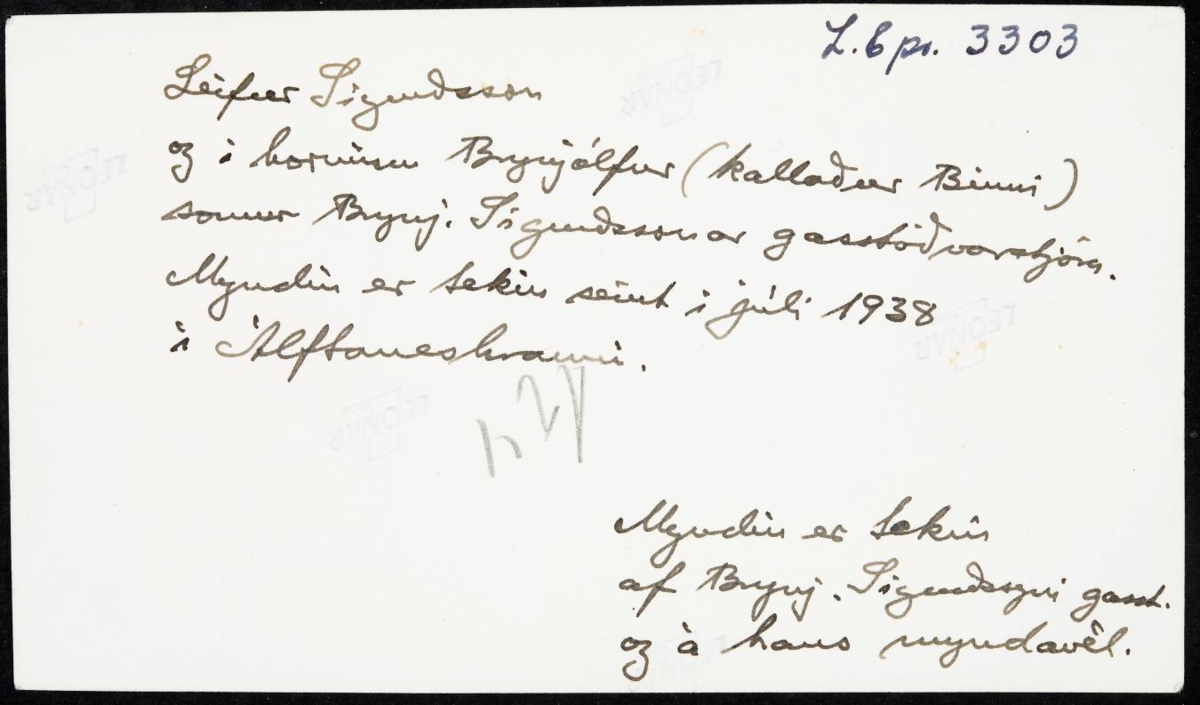 L.Epr. 3303
Leifur Sigurðsson
og í horninu Brynjólfur (kallaður Binni)
sonur Brynj. Sigurðssonar gasstöðvarstjóra.
Myndin er tekin seint í júlí 1938
í Álftaneshrauni.
Myndin er tekin
af Brynj. Sigurðssyni gasst.
og á hans myndavél.
LEONAR
LEONAR
LEONAR
LEONAR